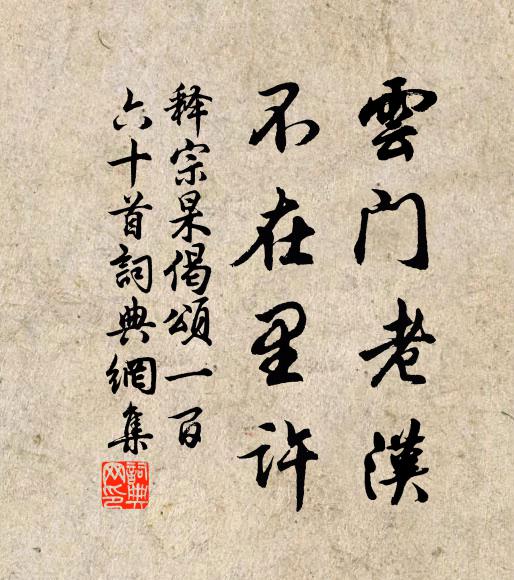 雲门老漢
不在里许
释宗杲偈頌一百
六十首詞典網集
詞典
网印